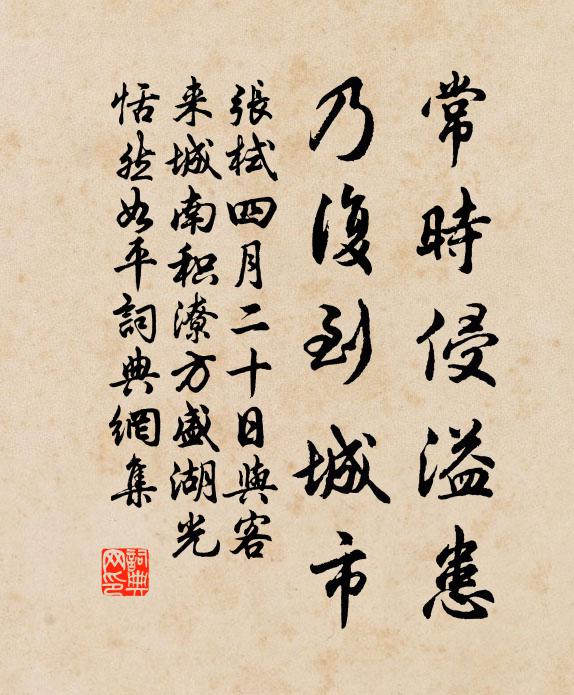 常時侵溢患
乃復到城市
張栻四月二十日與客
来城南积潦方盛湖光
恬然如平詞典網集
詞典
网印